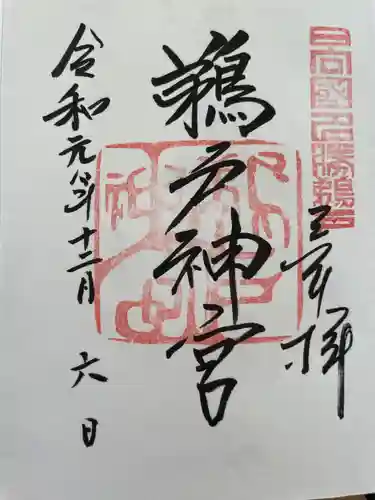 日向國名勝鵜戸
奉拝
鵜戸神宮
令和元年十二月六日